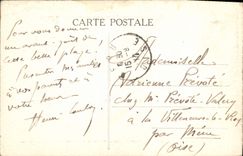 CARTE POSTALE
Pour donner
un avant-goût de
cette belle plage,
à vos parents et à
votre sœur
Henri
Mademoiselle
Adrienne Prévoté
chez Mr. Prévoté-Valery
à la Villeneuve-le-Roy
par Méru
(Oise)